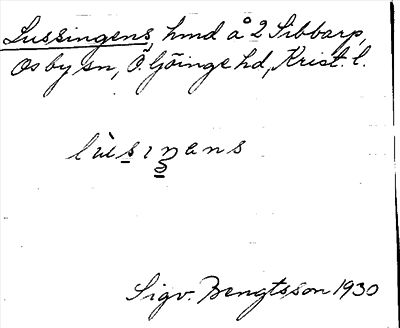 Lussingens, hmd å 2 Sibbarp,
Osby sn, Ö. Göinge hd, Krist. l.
lùsıŋens
Sigv. Bengtsson 1930